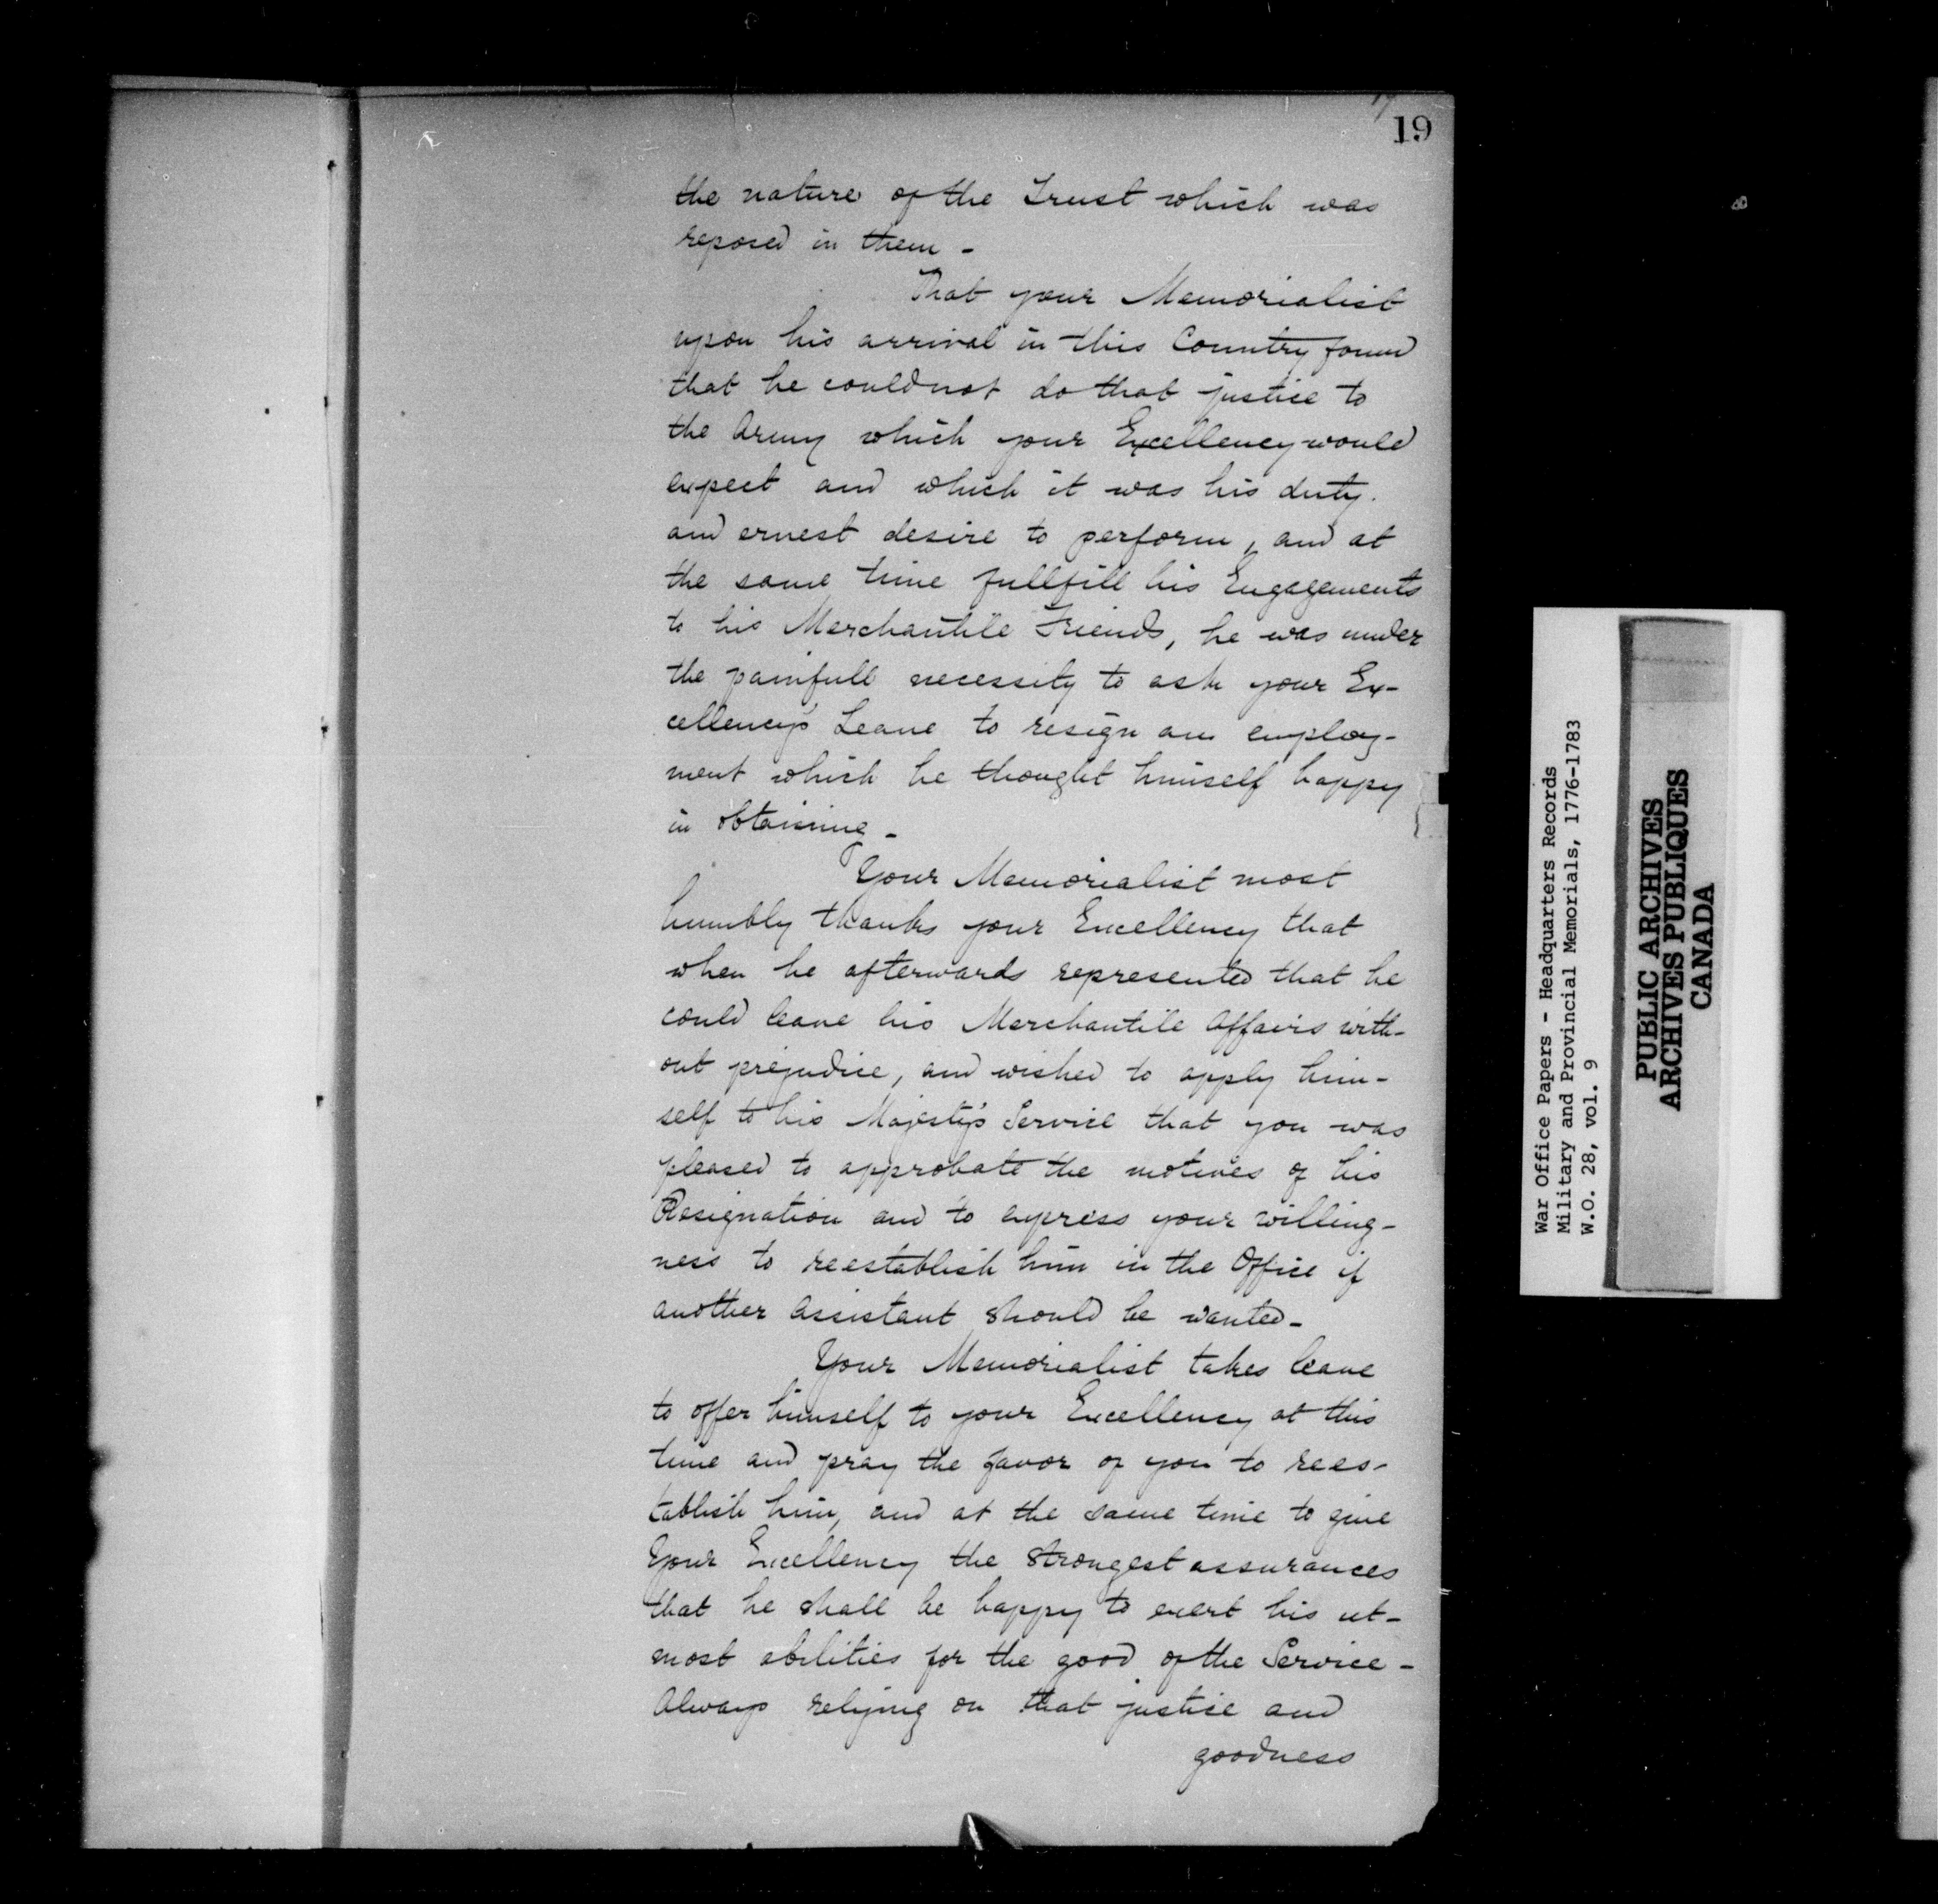 19
the nature of the Trust which was
reposed in them -
That your Memorialist
upon his arrival in this Country found
that he could not do that justice to
the Army which your Excellency would
expect and which it was his duty.
and ernest desire to perform, and at
the same time fullfill his Engagements
to his Merchantile Friends, he was under
the painfull necessity to ask your Ex-
cellency's Leave to resign an employ-
ment which he thought himself happy
in obtaining -
Your Memorialist most
humbly thanks your Excellency that
when he afterwards represented that he
could leave his Merchantile Affairs with-
out prejudice, and wished to apply him-
self to his Majesty's Service that you was
pleased to approbate the motives of his
Resignation and to express your willing-
ness to reestablish him in the Office if
another Assistant should be wanted -
Your Memorialist takes leave
to offer himself to your Excellency at this
time and pray the favor of you to rees-
tablish him, and at the same time to give
Your Excellency the strongest assurances
that he shall be happy to exert his ut-
most abilities for the good of the Service -
Always relying on that justice and
goodness
War Office Papers - Headquarters Records
Military and Provincial Memorials, 1776-1783
W.O. 28, vol. 9
PUBLIC ARCHIVES
ARCHIVES PUBLIQUES
CANADA